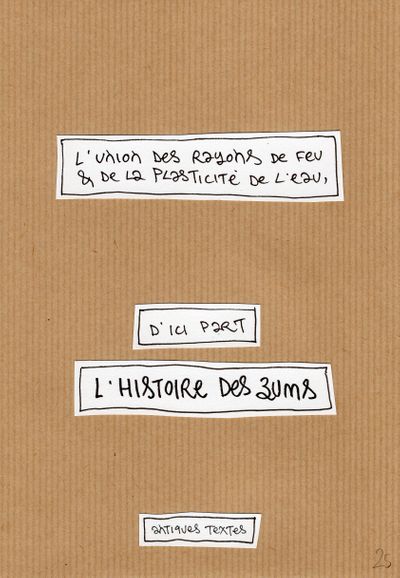 L'union des rayons de feu
& de la plasticité de l'eau,
D'ici part
L'Histoire des Zums
antiques textes
25